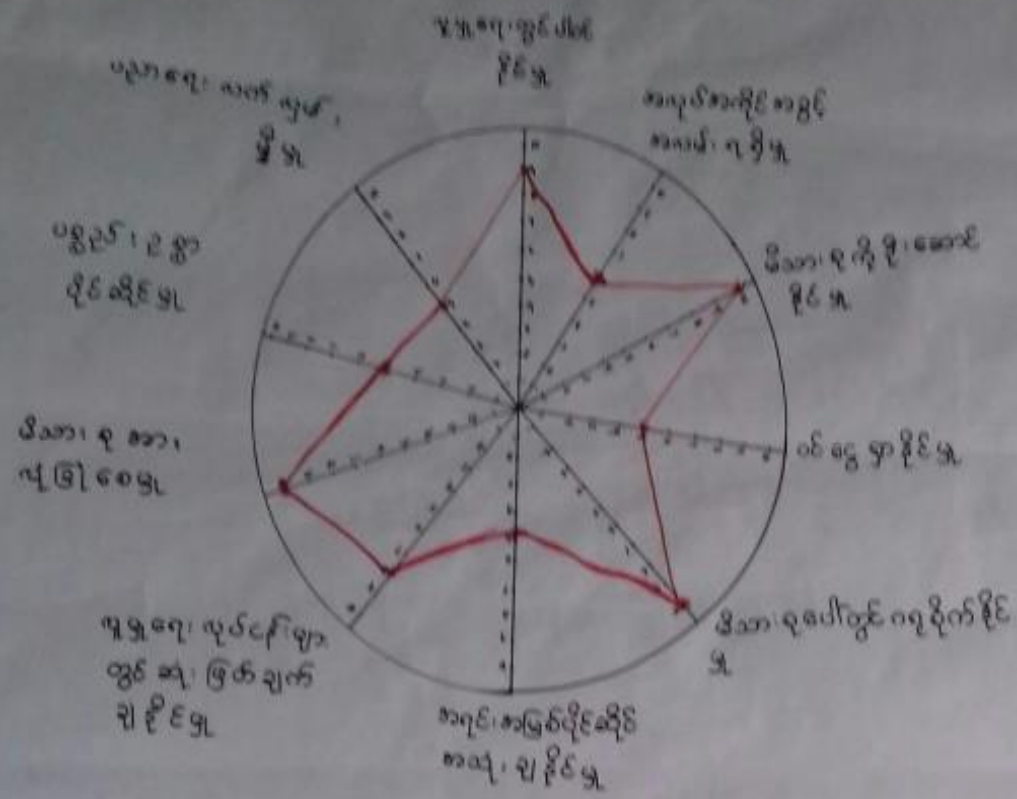 လူမှုရေးတွင်ပါဝင်
နိုင်မှု
အလုပ်အကိုင်အခွင့်
အလမ်းရရှိမှု
မိသားစုကိုဦးဆောင်
နိုင်မှု
ဝင်ငွေရှာနိုင်မှု
မိသားစုပေါ်တွင်ဂရုစိုက်နိုင်
မှု
အရင်းအမြစ်ပိုင်ဆိုင်
အသုံးချနိုင်မှု
လူမှုရေးလုပ်ငန်းများ
တွင်ဆုံးဖြတ်ချက်
ချနိုင်မှု
မိသားစုအား
လုံခြုံစေမှု
ပစ္စည်းဥစ္စာ
ပိုင်ဆိုင်မှု
ပညာရေးလက်လှမ်း
မှီမှု